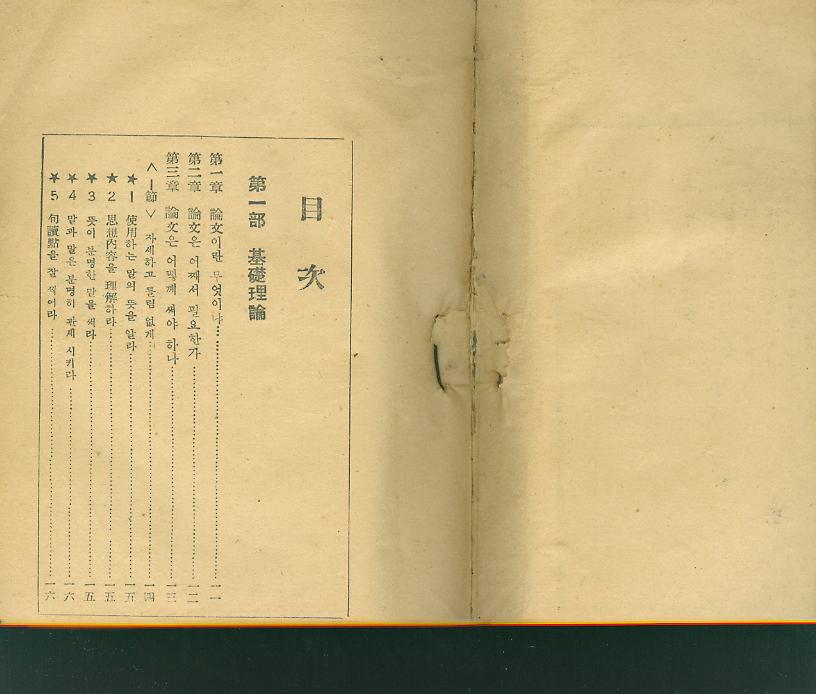 目次
第一部 基礎理論
第一章 論文이란 무엇이냐 一一
第二章 論文은 어째서 필요한가 一二
第三章 論文은 어떻게 써야 하나 一三
<1節> 자세하고 틀림 없게 一四
★1 使用하는 말의 뜻을 알라 一五
★2 思想內容을 理解하라 一五
★3 뜻이 분명한 말을 써라 一五
★4 말과 말은 분명히 관계 시키라 一六
★5 句讀點을 잘 찍어라 一六